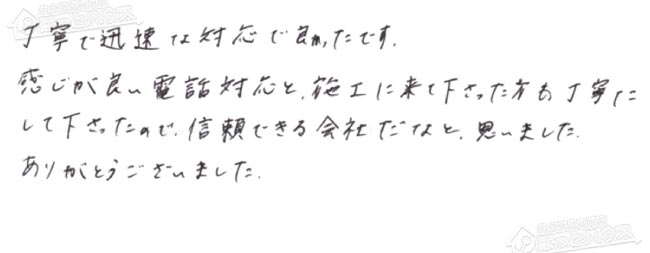 丁寧で迅速な対応で良かったです.
感じが良い電話対応と、施工に来て下さった方も丁寧に
して下さったので、信頼できる会社だなと、思いました.
ありがとうございました.